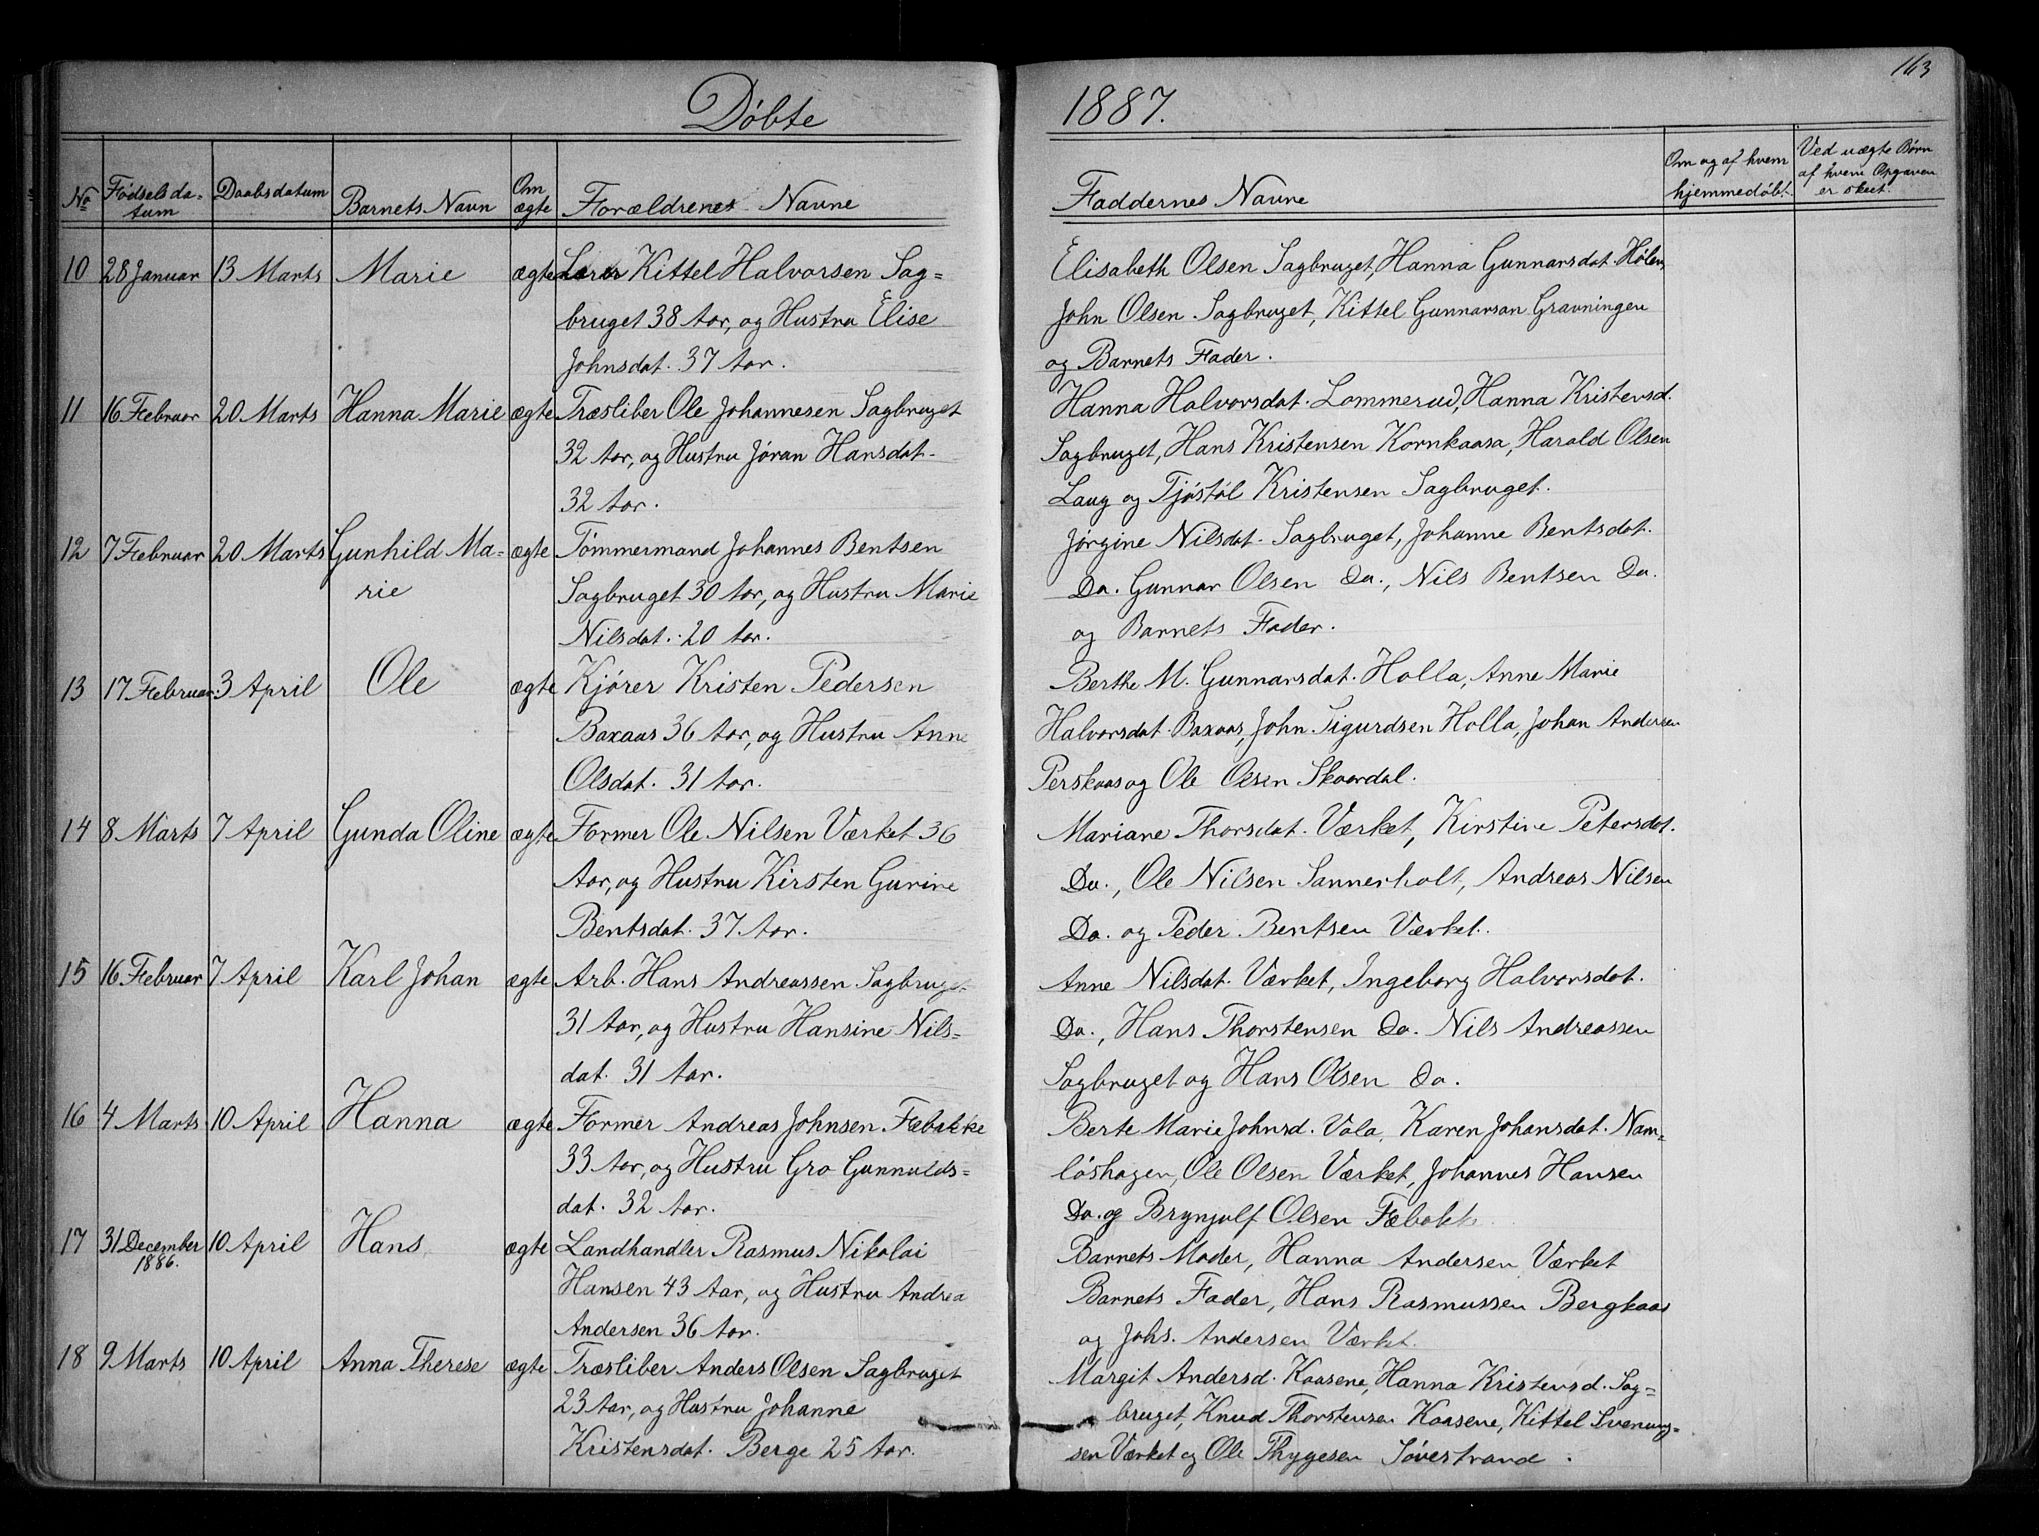 Döbte
No
Födselsda-
tum
Daabsdatum
Barnets Navn
Om
ægte
Forældrenes Navne
10 28 Januar 13 Marts Marie ægte Lærer Kittel Halvorsen Sag=
bruget 38 Aar, og Hustru Elise
Johnsdat. 37 Aar.
11 16 Februar 20 Marts Hanna Marie ægte Træsliber Ole Johannesen Sagbruget
32 Aar, og Hustru Jöran Hansdat.
32 Aar.
12 7 Februar 20 Marts Gunhild Ma- ægte Tömmermand Johannes Bentsen
rie Sagbruget 30 Aar, og Hustru Marie
Nilsdat. 20 Aar.
13 17 Februar. 3 April Ole ægte Kjörer Kristen Pedersen
Baxaas 36 Aar, og Hustru Anne
Olsdat. 31 Aar.
14 8 Marts 7 April Gunda Oline ægte Former Ole Nilsen Værket 36
Aar, og Hustru Kirsten Gurine
Bentsdat. 37 Aar.
15 16 Februar 7 April Karl Johan ægte Arb. Hans Andreassen Sagbruget
31 Aar, og Hustru Hansine Nils-
dat. 31 Aar.
16 4 Marts 10 April Hanna ægte Former Andreas Johnsen Fæbakke
33 Aar, og Hustru Gro Gunnulds-
dat. 32 Aar.
17 31 December 10 April Hans ægte Landhandler Rasmus Nikolai
1886. Hansen 43 Aar, og Hustru Andrea
Andersen 36 Aar.
18 9 Marts 10 April Anna Therese ægte Træsliber Anders Olsen Sagbruget
23 Aar, og Hustru Johanne
Kristensdat. Berge 25 Aar.
163
1887.
Faddernes Navne
Om og af hvem
hjemmedöbt.
Ved uægte Børn
af hvem Opgaven
er skeet
Elisabeth Olsen Sagbruget, Hanna Gunnarsdat. Hölen,
John Olsen Sagbruget, Kittel Gunnarsan Gravningen
og Barnets Fader.
Hanna Halvorsdat. Lommerud, Hanna Kristensd.
Sagbruget, Hans Kristensen Kornkaasa, Harald Olsen
Laug og Tjöstöl Kristensen Sagbruget.
Jörgine Nilsdat. Sagbruget, Johanne Bentsdat.
Do. Gunnar Olsen Do., Nils Bentsen Do.
og Barnets Fader.
Berthe M. Gunnarsdat. Holla, Anne Marie
Halvorsdat. Baxaas, John Sigurdsen Holla, Johan Andersen
Perskaas og Ole Olsen Skaardal.
Mariane Thorsdat. Værket, Kirstine Petersdat.
Do., Ole Nilsen Sannerholt, Andreas Nilsen
Do. og Peder Bentsen Værket.
Anne Nilsdat. Værket, Ingeborg Halvorsdat.
Do., Hans Thorstensen Do. Nils Andreassen
Sagbruget og Hans Olsen Do.
Berte Marie Johnsd. Vala, Karen Johansdat. Nam=
löshagen, Ole Olsen Værket, Johannes Hansen
Do. og Brynjulf Olsen
Barnets Moder, Hanna Andersen Værket
Barnets Fader, Hans Rasmussen Bergkaas
og Johs. Andersen Værket.
Margit Andersd. Kaasene, Hanna Kristensd. Sag=
bruget, Knud Thorstensen Kaasene, Kittel Svenung=
sen Værket og Ole Thygesen Sövestrand.